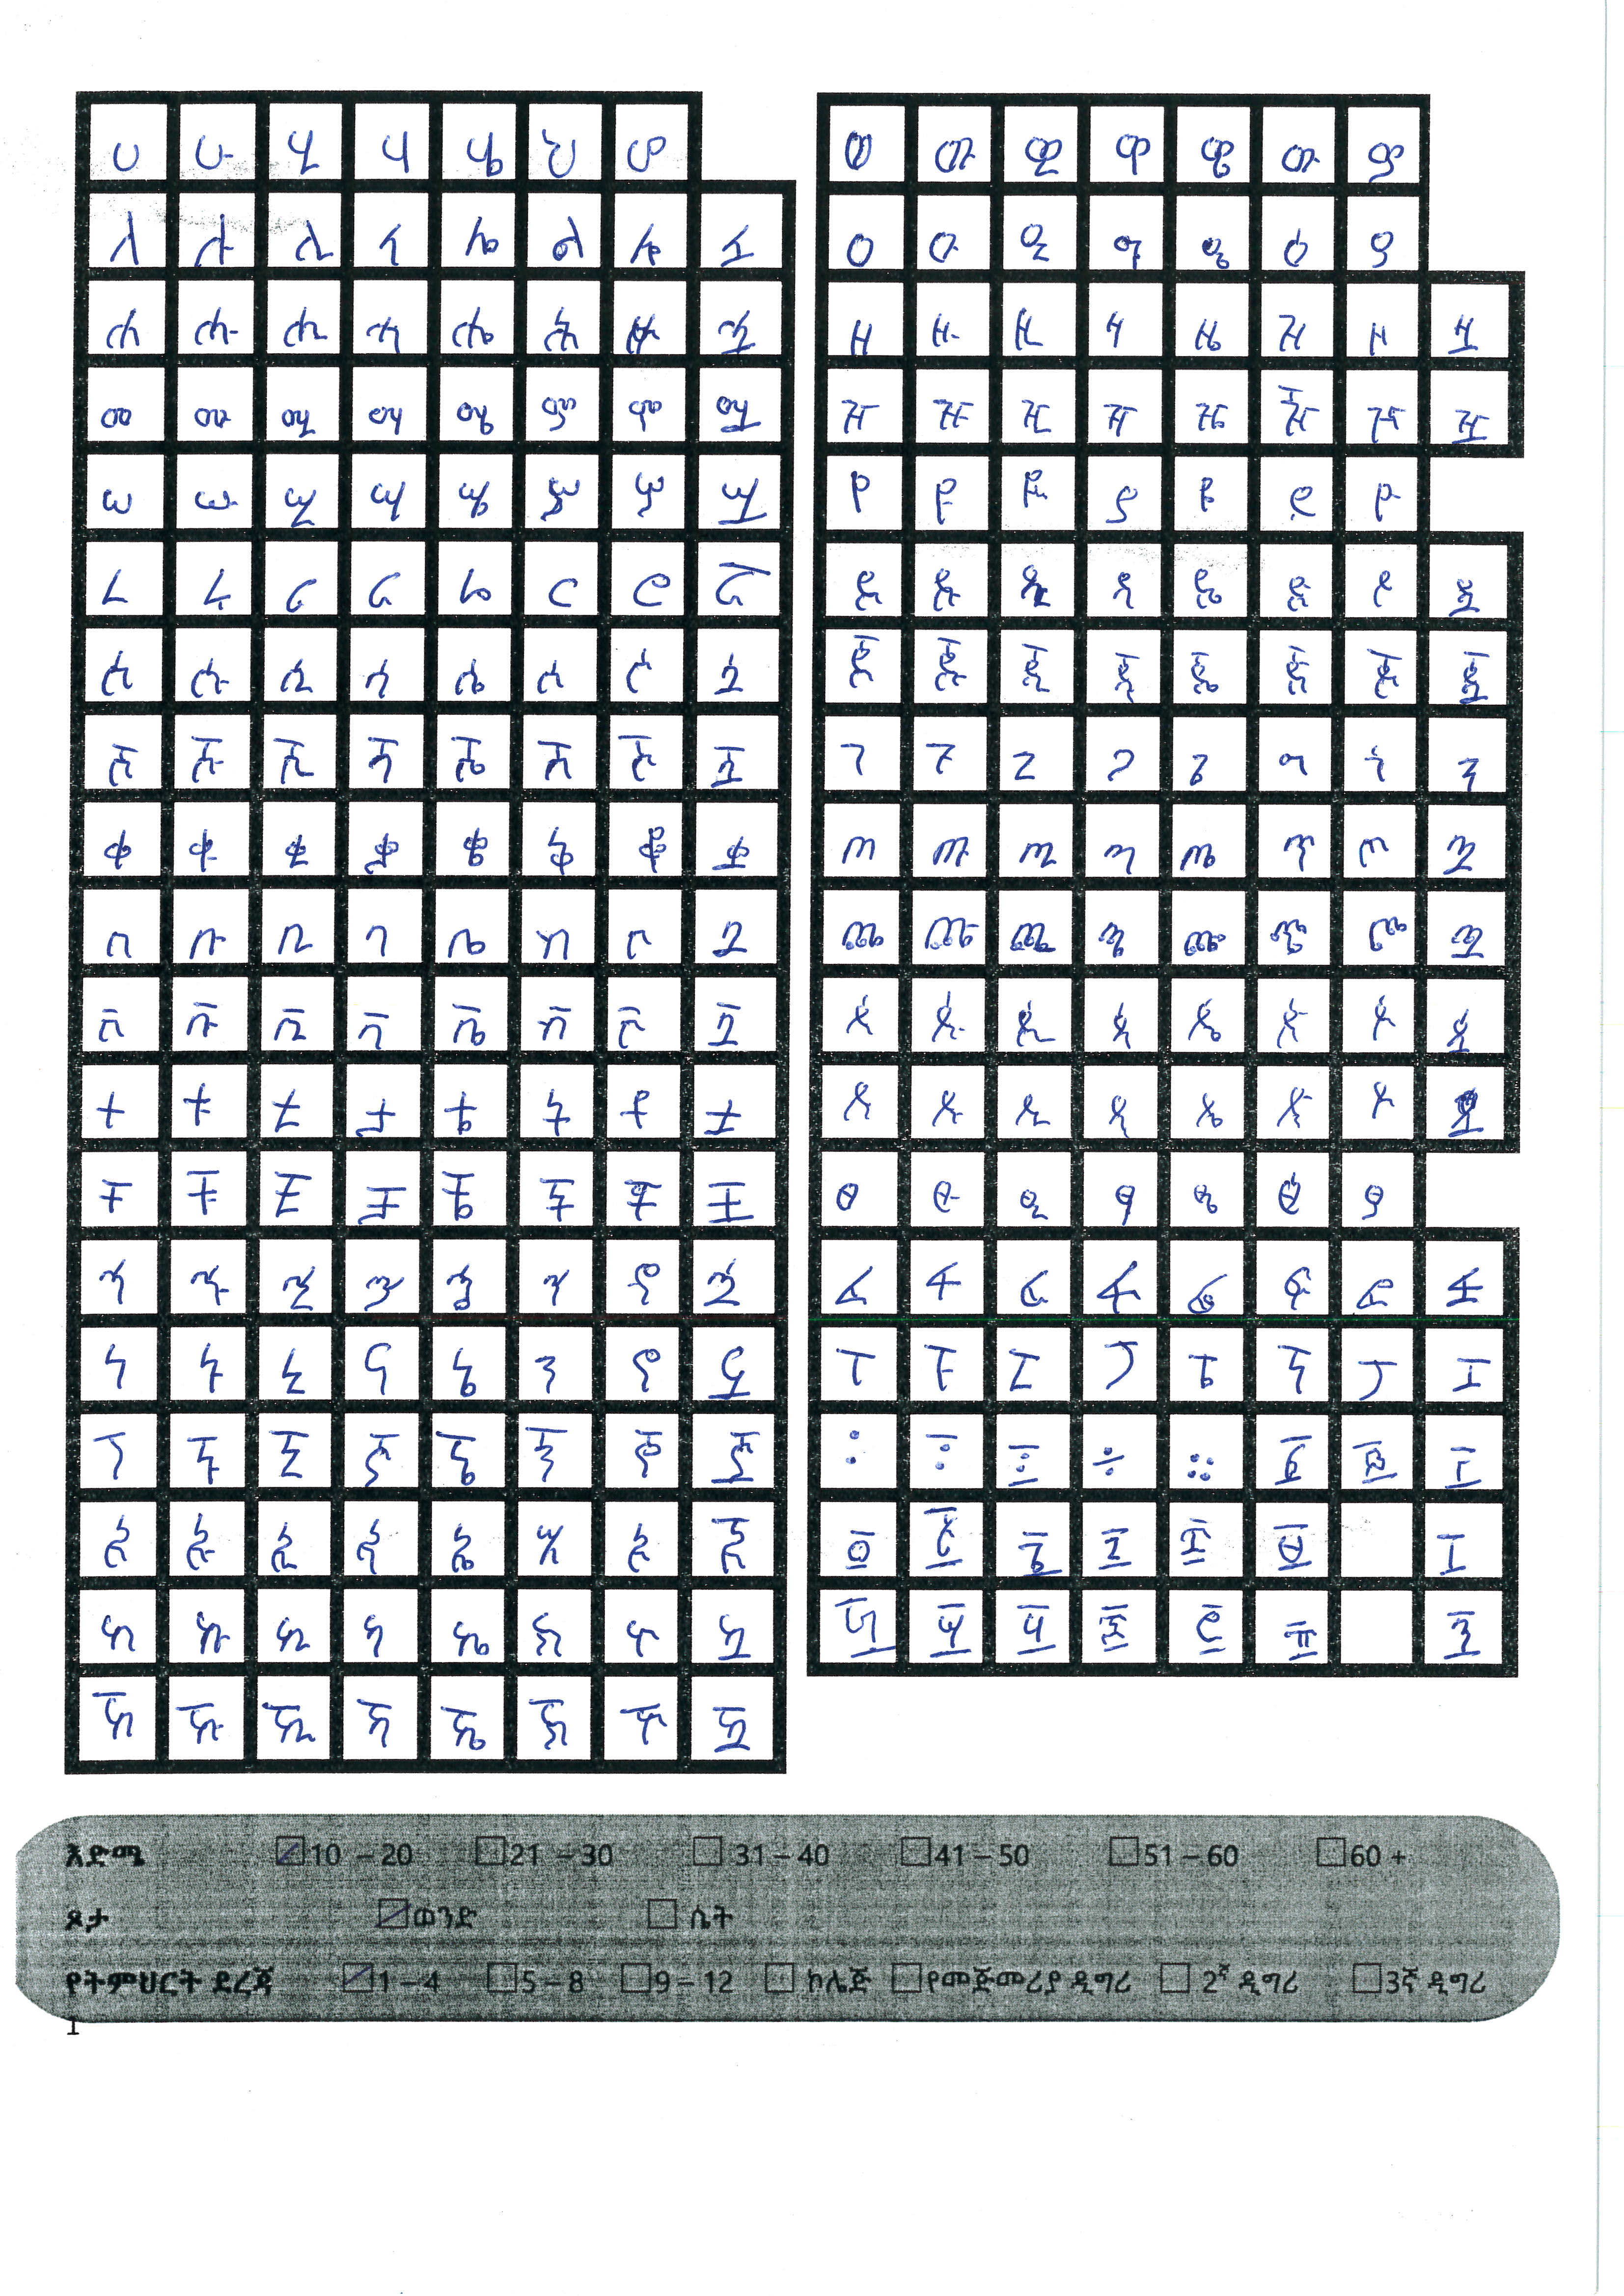 ሀ ሁ ሂ ሃ ሄ ህ ሆ
ለ ሉ ሊ ላ ሌ ል ሎ ሏ
ሐ ሑ ሒ ሓ ሔ ሕ ሖ ሗ
መ ሙ ሚ ማ ሜ ም ሞ ሟ
ሠ ሡ ሢ ሣ ሤ ሥ ሦ ሧ
ረ ሩ ሪ ራ ሬ ር ሮ ሯ
ሰ ሱ ሲ ሳ ሴ ስ ሶ ሷ
ሸ ሹ ሺ ሻ ሼ ሽ ሾ ሿ
ቀ ቁ ቂ ቃ ቄ ቅ ቆ ቋ
በ ቡ ቢ ባ ቤ ብ ቦ ቧ
ቨ ቩ ቪ ቫ ቬ ቭ ቮ ቯ
ተ ቱ ቲ ታ ቴ ት ቶ ቷ
ቸ ቹ ቺ ቻ ቼ ች ቾ ቿ
ኀ ኁ ኂ ኃ ኄ ኅ ኆ ኋ
ነ ኑ ኒ ና ኔ ን ኖ ኗ
ኘ ኙ ኚ ኛ ኜ ኝ ኞ ኟ
አ ኡ ኢ ኣ ኤ እ ኦ ኧ
ከ ኩ ኪ ካ ኬ ክ ኮ ኳ
ኸ ኹ ኺ ኻ ኼ ኽ ኾ ዃ
ወ ዉ ዊ ዋ ዌ ው ዎ
ዐ ዑ ዒ ዓ ዔ ዕ ዖ
ዘ ዙ ዚ ዛ ዜ ዝ ዞ ዟ
ዠ ዡ ዢ ዣ ዤ ዥ ዦ ዧ
የ ዩ ዪ ያ ዬ ይ ዮ
ደ ዱ ዲ ዳ ዴ ድ ዶ ዷ
ጀ ጁ ጂ ጃ ጄ ጅ ጆ ጇ
ገ ጉ ጊ ጋ ጌ ግ ጎ ጓ
ጠ ጡ ጢ ጣ ጤ ጥ ጦ ጧ
ጨ ጩ ጪ ጫ ጬ ጭ ጮ ጯ
ጰ ጱ ጲ ጳ ጴ ጵ ጶ ጷ
ጸ ጹ ጺ ጻ ጼ ጽ ጾ ጿ
ፀ ፁ ፂ ፃ ፄ ፅ ፆ
ፈ ፉ ፊ ፋ ፌ ፍ ፎ ፏ
ፐ ፑ ፒ ፓ ፔ ፕ ፖ ፗ
፩ ፪
፫ ፬ ፭ ፮ ፯ ፰
፱ ፲ ፳ ፴ ፵ ፶ ፷
እድሜ 10 – 20 21 – 30 31 – 40 41 – 50 51 – 60 60 +
ጾታ ወንድ ሴት
የትምህርት ደረጃ 1 – 4 5 – 8 9 – 12 ኮሌጅ የመጅመሪያ ዲግሪ 2ኛ ዲግሪ 3ኛ ዲግሪ
1